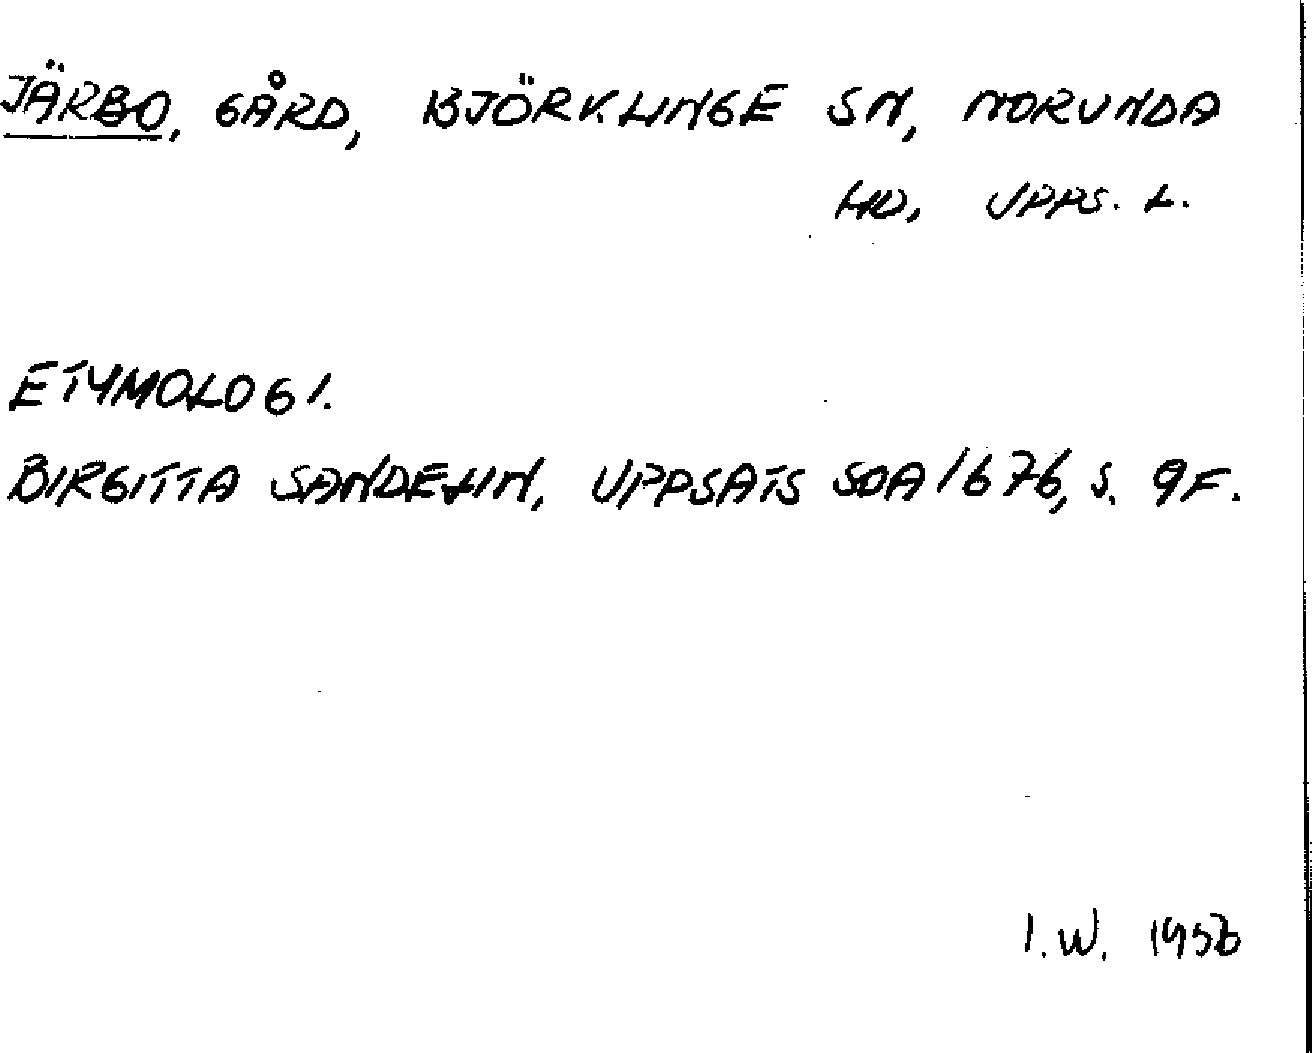 JÄRBO, GÅRD, BJÖRKLINGE SN, NORUNDA
HD, UPPS. L.
ETYMOLOGI.
BIRGITTA SANDELIN, UPPSATS SOA 1676, S. 9F.
I.W.